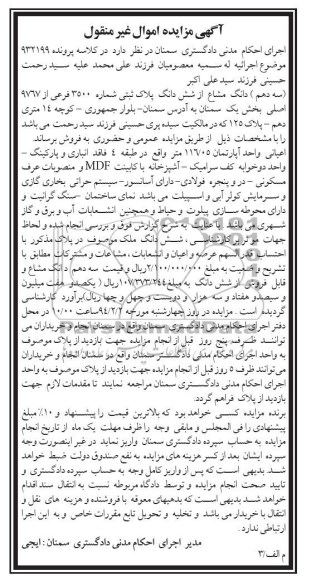 آگهی مزایده اموال غیر منقول
اجرای احکام مدنی دادگستری سمنان در نظر دارد در کلاسه پرونده ۹۳۲۱۹۹
موضوع اجرائیه له سمیه معصومیان فرزند علی محمد علیه سید رحمت
حسینی فرزند سید علی اکبر
(سه دهم) دانگ مشاع از شش دانگ پلاک ثبتی شماره ۳۵۰۰ فرعی از ۹۷۶۷
اصلی بخش یک سمنان به آدرس سمنان- بلوار جمهوری - کوچه ۱۴ متری
دهم - پلاک ۱۲۵ که در مالکیت سیده پری حسینی فرزند سید رحمت می باشد
را با مشخصات ذیل از طریق مزایده عمومی و حضوری به فروش برساند.
اعیانی واحد آپارتمان ۱۱۶/۰۵ متر واقع در طبقه ۴ فاقد انباری و پارکینگ -
واحد دوخوابه کف سرامیک - آشپزخانه با کابینت MDF و منصوبات عرف
مسکونی - در و پنجره فولادی- دارای آسانسور- سیستم حرارتی بخاری گازی
و سرمایش کولر آبی و اسپیلت می باشد نمای ساختمان -سنگ گرانیت و
دارای محوطه سازی پیلوت و حیاط و همچنین انشعابات آب و برق و گاز
شهری می باشد با عنایت به شرح گزارش فوق و بررسی انجام شده و لحاظ
جهات موثر بر کارشناسی ، شش دانگ ملک موصوف در پلاک مذکور با
احتساب قدرالسهم عرصه و اعیان و انشعابات ، مشاعات و مشترکات مطابق با
تشریح وضعیت به مبلغ ۲/۱۰۰/۰۰۰/۰۰۰ریال و قیمت سه دهم دانگ مشاع و
قابل فروش از شش دانگ به مبلغ ۱۰۷/۳۷۳/۲۴۴ریال ( یکصدو هفت میلیون
و سیصدو هفتاد و سه هزار و دویست و چهل و چهار ریال)برآورد کارشناسی
گردیده است . مزایده در روز چهارشنبه مورخه ۹۴/۲/۲ساعت ۱۰/۰۰ در محل
دفتر اجرای احکام مدنی دادگستری سمنان واقع در سمنان انجام و خریداران می
توانند ظرف پنج روز قبل از انجام مزایده جهت بازدید از پلاک موصوف
به واحد اجرای احکام مدنی دادگستر سمنان واقع در سمنان انجام و خریداران
می توانند ظرف ۵ روز قبل از انجام مزایده جهت بازدید از پلاک موصوف به واحد
اجرای احکام مدنی دادگستری سمنان مراجعه نمایند تا مقدمات لازم جهت
بازدید از پلاک فراهم گردد.
برنده مزایده کسی خواهد بود که بالاترین قیمت را پیشنهاد و ۱۰٪ مبلغ
پیشنهادی را فی المجلس و مابقی وجه را ظرف مهلت یک ماه از تاریخ انجام
مزایده به حساب سپرده دادگستری سمنان واریز نماید در غیر اینصورت وجه
سپرده ایشان بعد از کسر هزینه های مزایده به نفع صندوق دولت ضبط خواهد
شد بدیهی است که پس از واریز کامل وجه به حساب سپرده دادگستری و
تایید صحت انجام مزایده و توسط دادگاه مربوطه نسبت به انتقال سند اقدام
خواهد شد بدیهی است که بدهیهای معوقه با فروشنده و هزینه های نقل و
انتقال با خریدار می باشد و تخلیه و تحویل تابع مقررات خاص و به این اجرا
ارتباطی ندارد .
مدیر اجرای احکام مدنی دادگستری سمنان : ایجی
م الف/۳